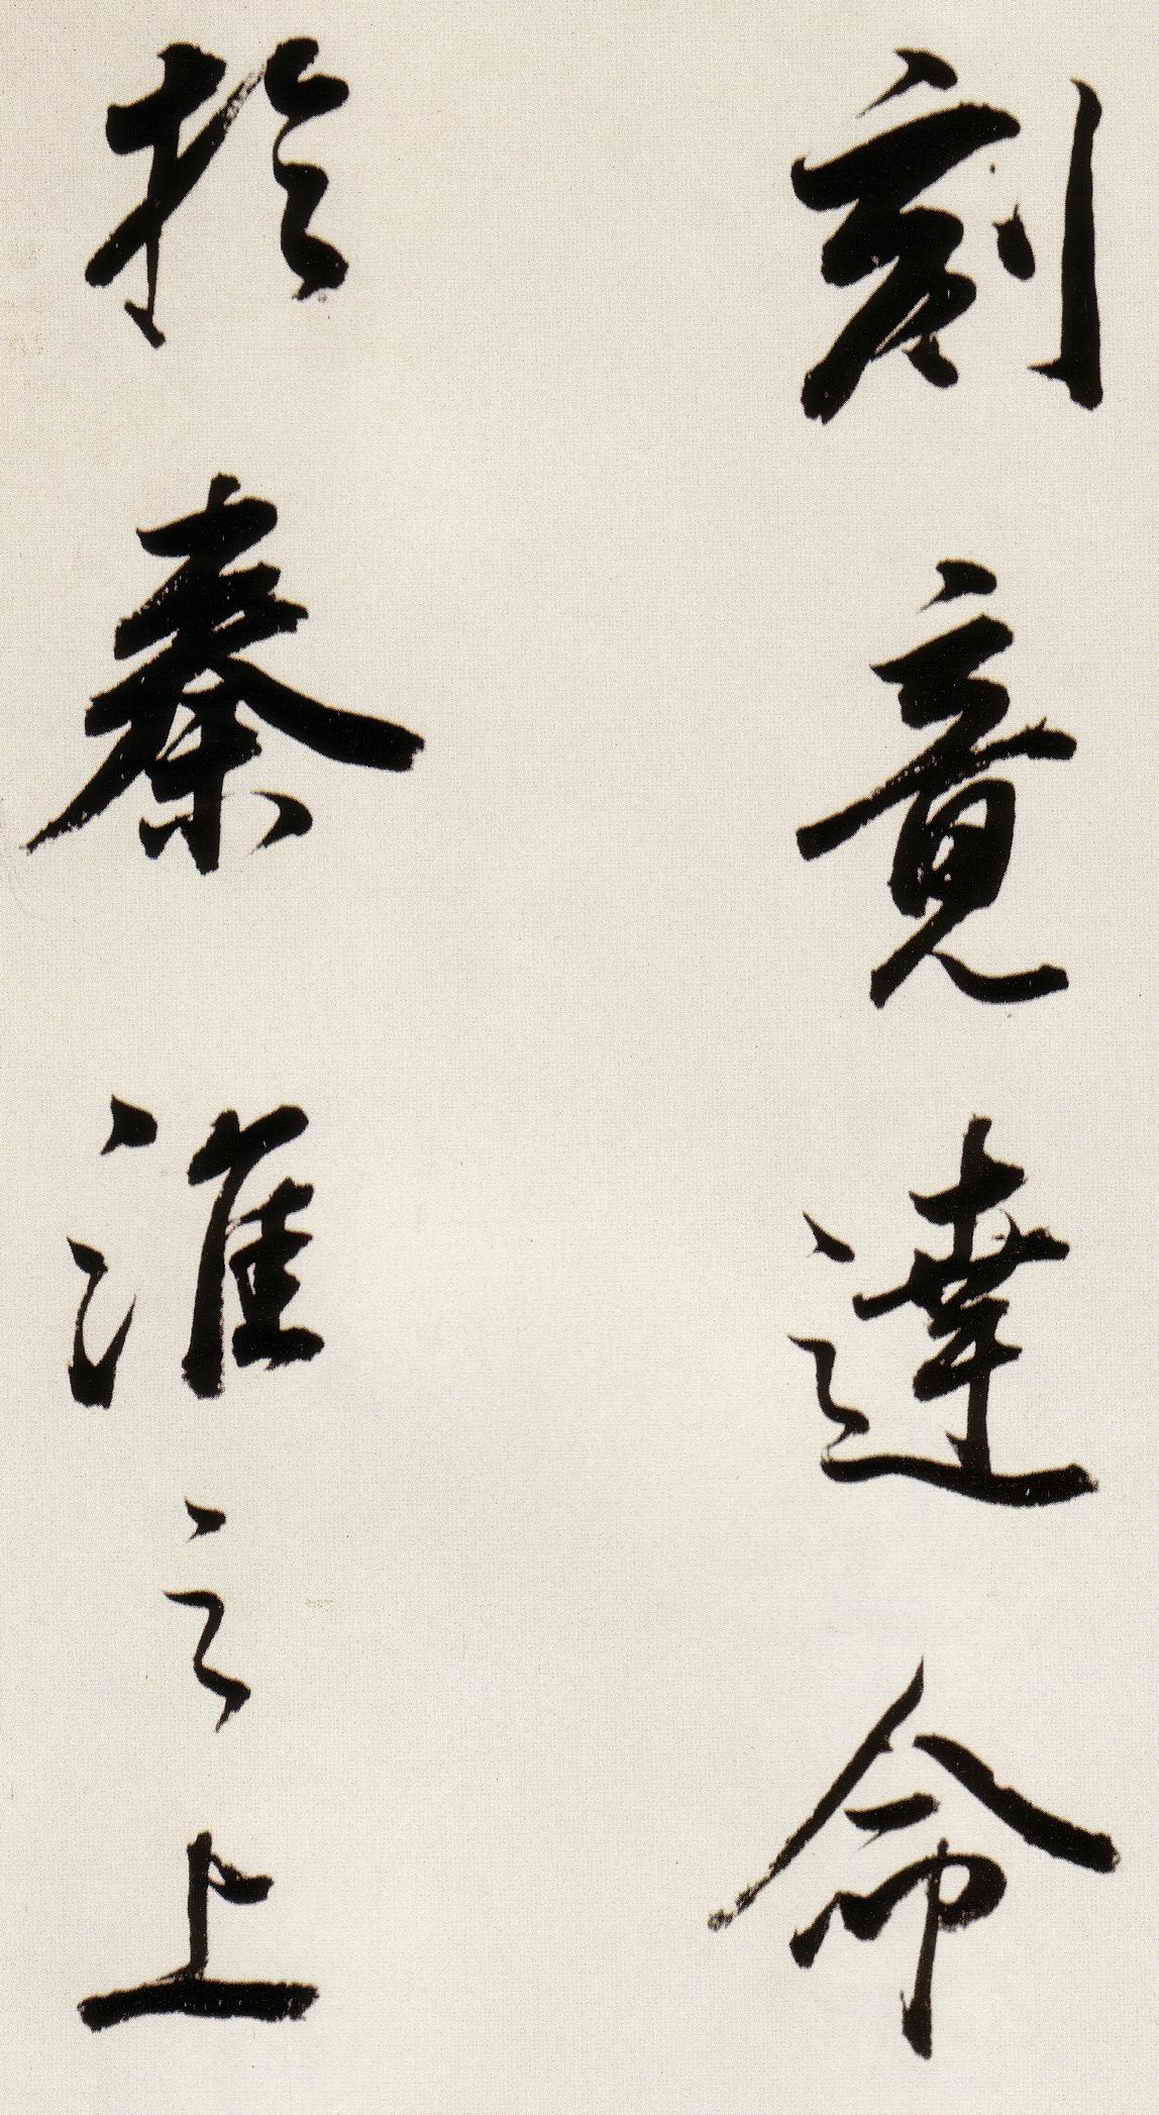 刻竟達命
於秦淮之上